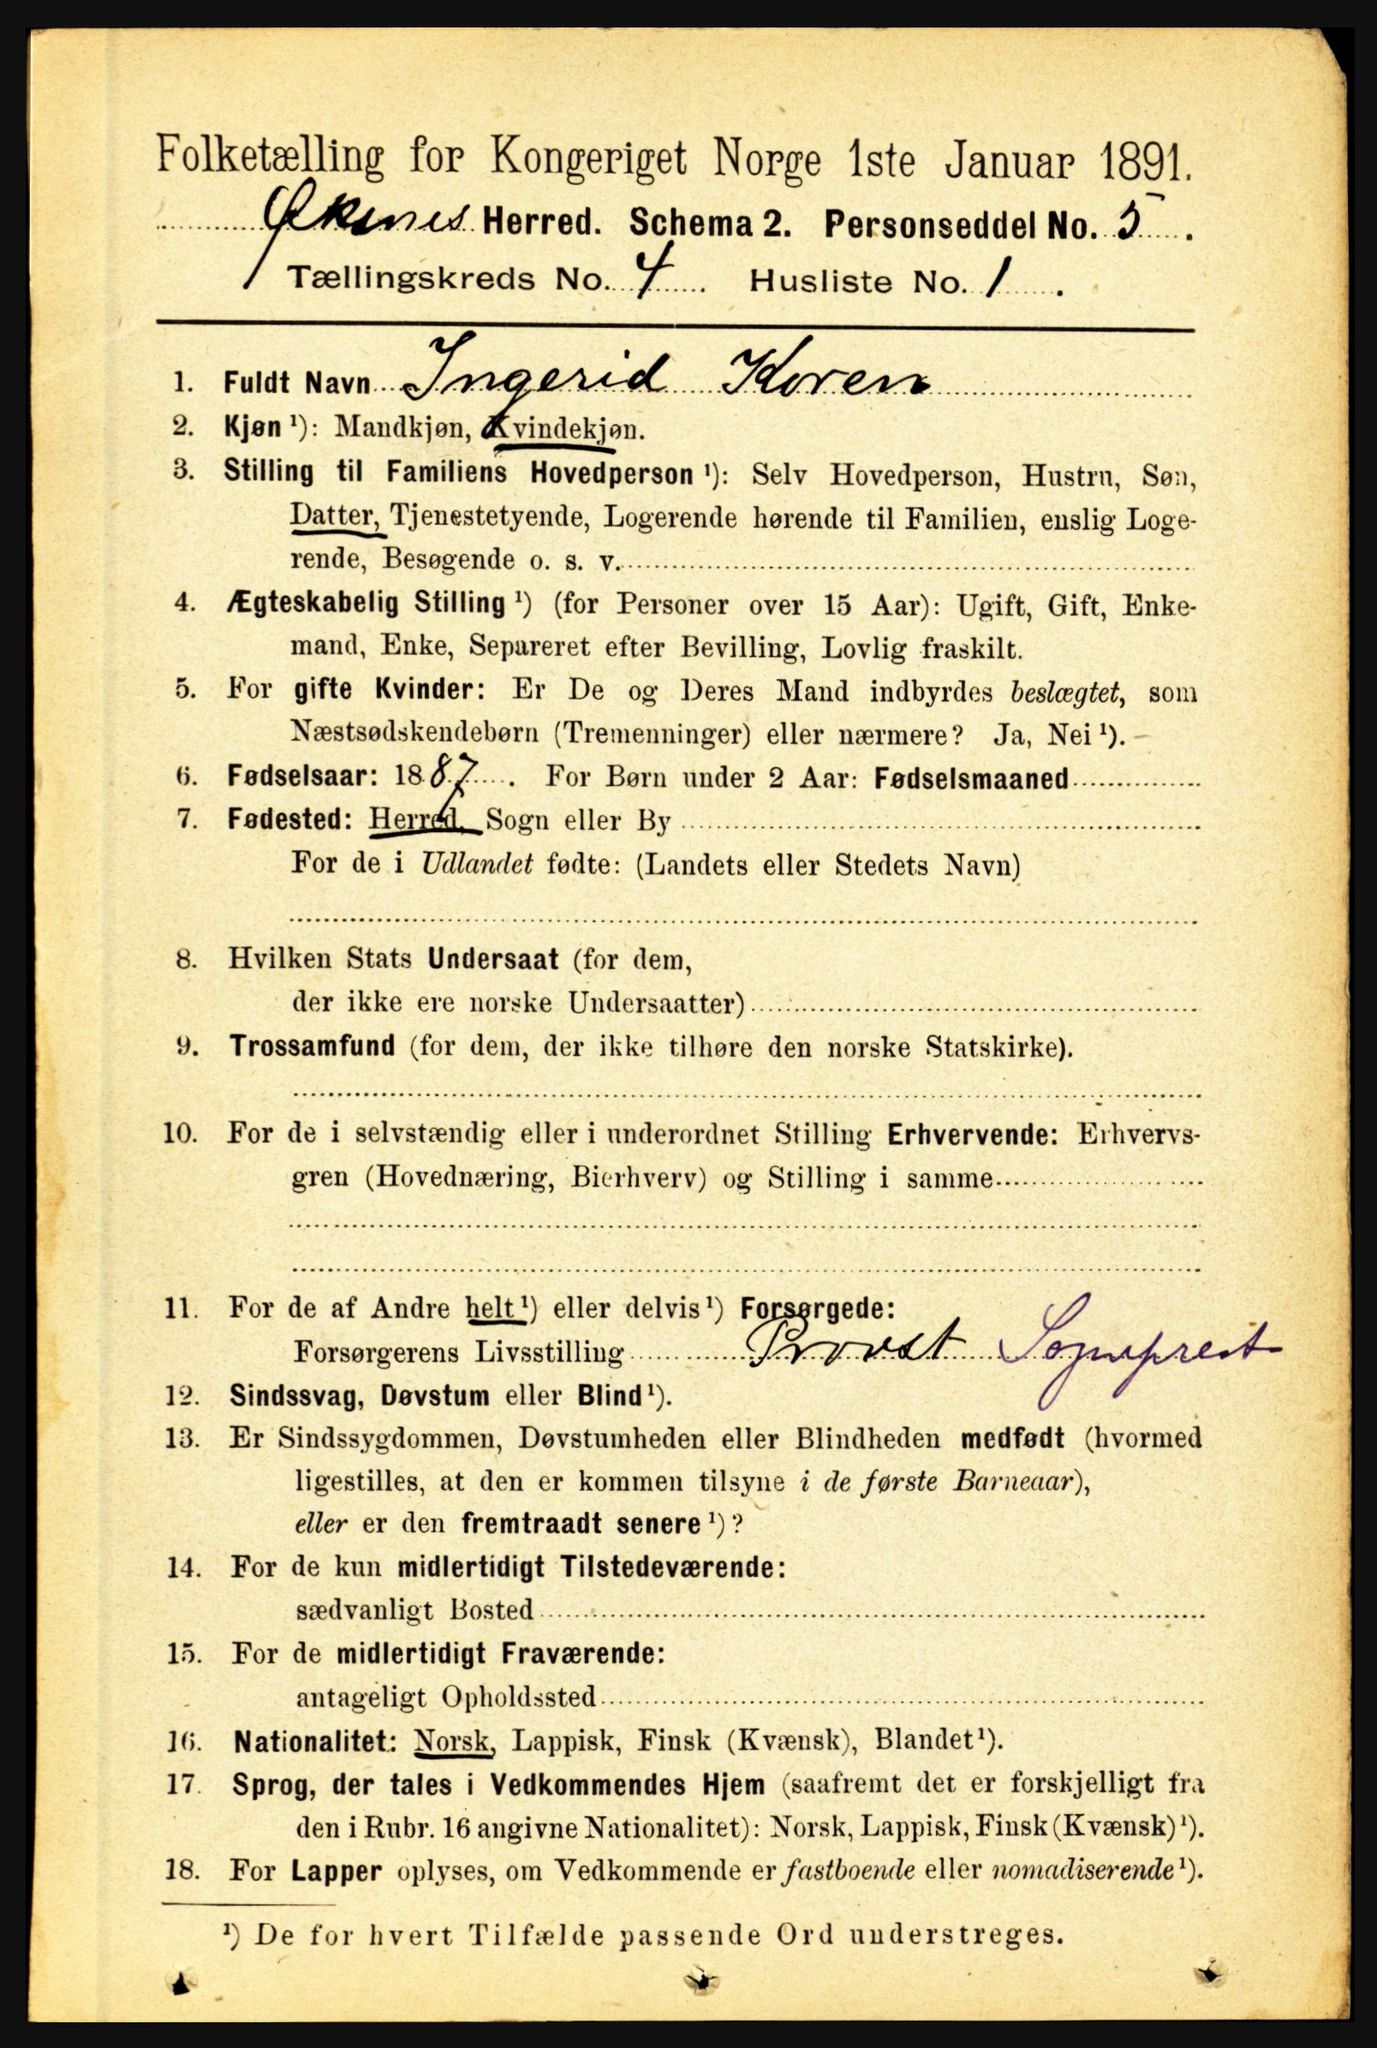 Folketælling for Kongeriget Norge 1ste Januar 1891.
Øksnes Herred. Schema 2. Personseddel No. 5.
Tællingskreds No. 4. Husliste No. 1.
1. Fuldt Navn Ingerid Koren
2. Kjøn ¹): Mandkjøn, Kvindekjøn.
3. Stilling til Familiens Hovedperson ¹): Selv Hovedperson, Hustru, Søn,
Datter, Tjenestetyende, Logerende hørende til Familien, enslig Loge-
rende, Besøgende o. s. v.
4. Ægteskabelig Stilling ¹) (for Personer over 15 Aar): Ugift, Gift, Enke-
mand, Enke, Separeret efter Bevilling, Lovlig fraskilt.
5. For gifte Kvinder: Er De og Deres Mand indbyrdes beslægtet, som
Næstsødskendebørn (Tremenninger) eller nærmere? Ja, Nei ¹).
6. Fødselsaar: 1887. For Børn under 2 Aar: Fødselsmaaned
7. Fødested: Herred, Sogn eller By
For de i Udlandet fødte: (Landets eller Stedets Navn)
8. Hvilken Stats Undersaat (for dem,
der ikke ere norske Undersaatter)
9. Trossamfund (for dem, der ikke tilhøre den norske Statskirke).
10. For de i selvstændig eller i underordnet Stilling Erhvervende: Erhvervs-
gren (Hovednæring, Bierhverv) og Stilling i samme
11. For de af Andre helt ¹) eller delvis ¹) Forsørgede:
Forsørgerens Livsstilling Provst Sogneprest
12. Sindssvag, Døvstum eller Blind ¹).
13. Er Sindssygdommen, Døvstumheden eller Blindheden medfødt (hvormed
ligestilles, at den er kommen tilsyne i de første Barneaar),
eller er den fremtraadt senere ¹)?
14. For de kun midlertidigt Tilstedeværende:
sædvanligt Bosted
15. For de midlertidigt Fraværende:
antageligt Opholdssted
16. Nationalitet: Norsk, Lappisk, Finsk (Kvænsk), Blandet ¹).
17. Sprog, der tales i Vedkommendes Hjem (saafremt det er forskjelligt fra
den i Rubr. 16 angivne Nationalitet): Norsk, Lappisk, Finsk (Kvænsk) ¹).
18. For Lapper oplyses, om Vedkommende er fastboende eller nomadiserende ¹).
¹) De for hvert Tilfælde passende Ord understreges.